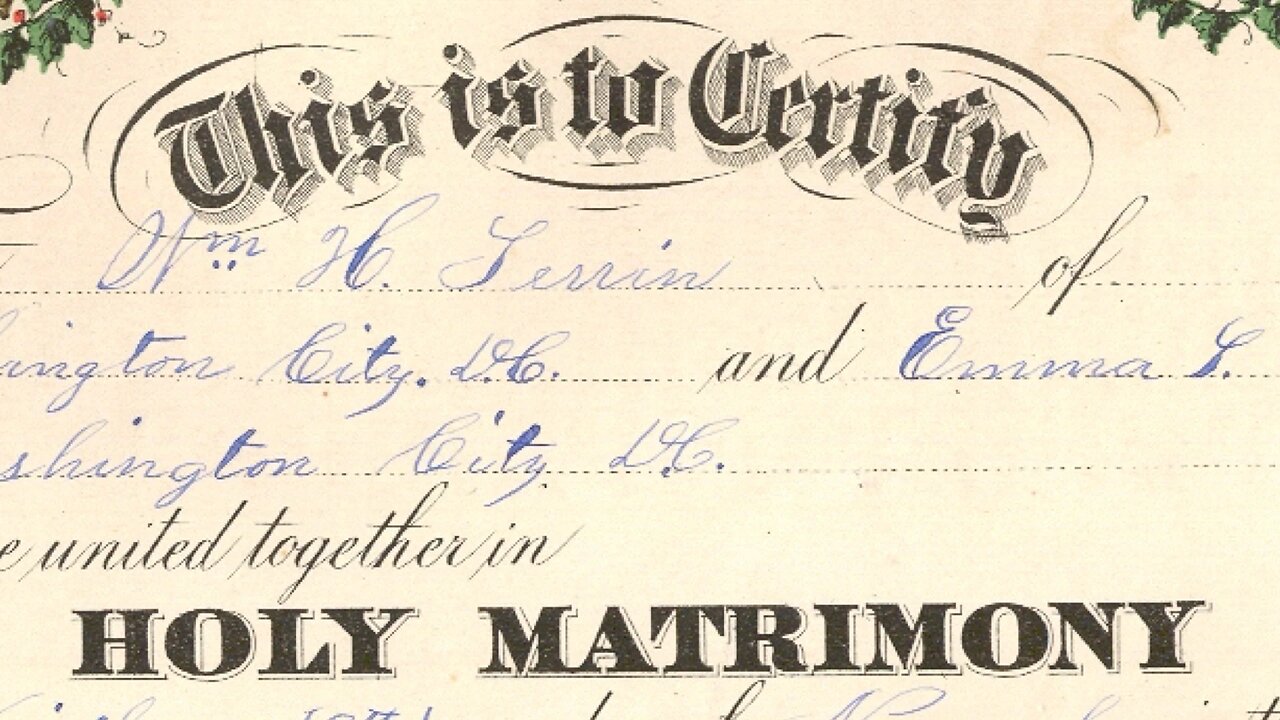 This is to Certify
Wm H. Perrin of
hington City. D.C. and Emma L.
shington City D.C.
e united together in
HOLY MATRIMONY